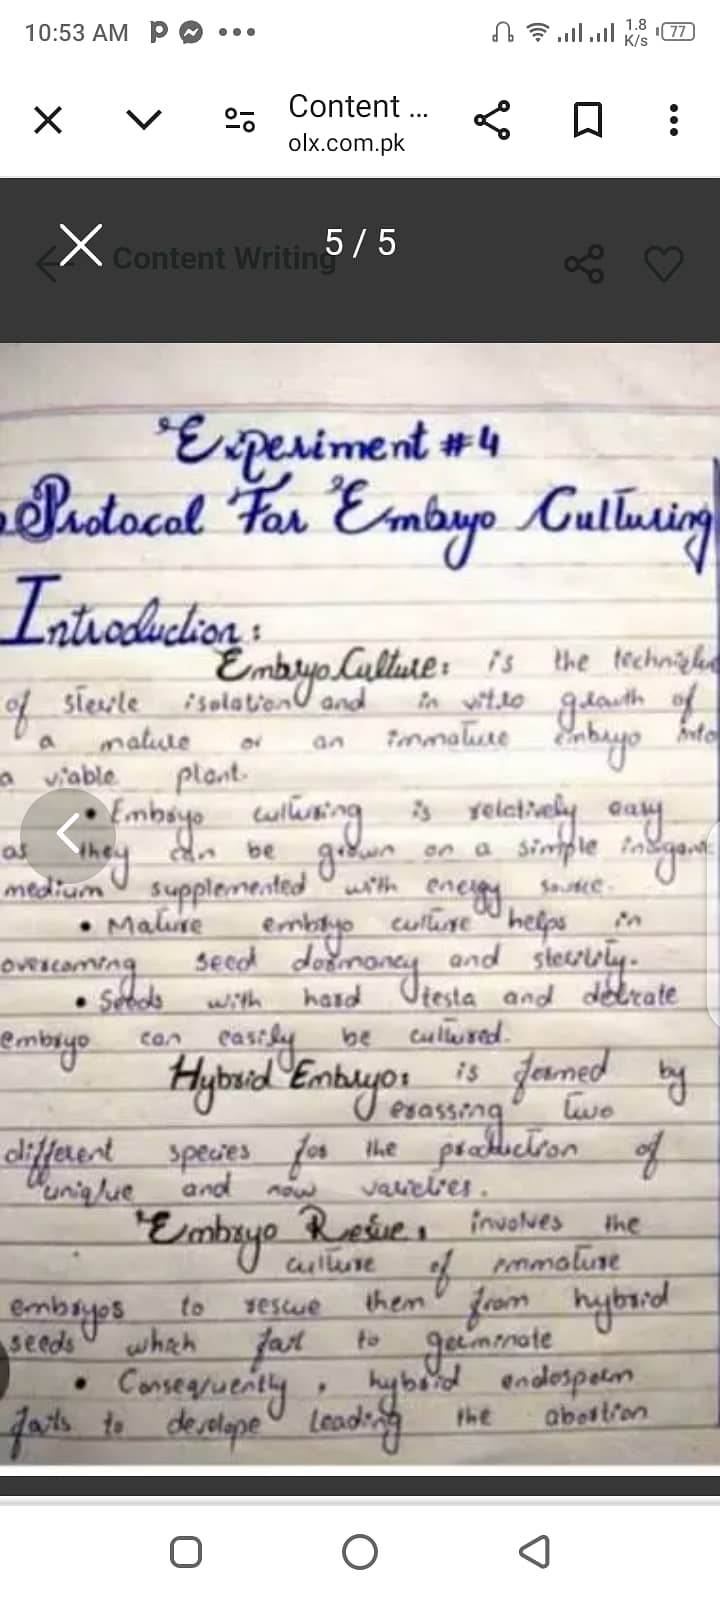 10:53 AM
1.8 K/s
77
Content ...
olx.com.pk
Content Writing
5 / 5
Experiment #4
Protocal For Embryo Culturing
Introduction:
Embryo Culture: is the technique
of sterile isolation and in vitro growth of
a mature or an immature embryo into
a viable plant.
• Embryo culturing is relctively easy
as they can be grown on a simple inorganic
medium supplemented with energy source.
• Mature embryo culture helps in
overcoming seed dormancy and sterility.
• Seeds with hard testa and delicate
embryo can easily be cultured.
Hybrid Embryo: is formed by
crossing two
different species for the production of
unique and new varieties.
Embryo Resue: involves the
culture of immature
embryos to rescue them from hybrid
seeds which fail to germinate
• Consequently, hybrid endosperm
fails to develope leading the abortion